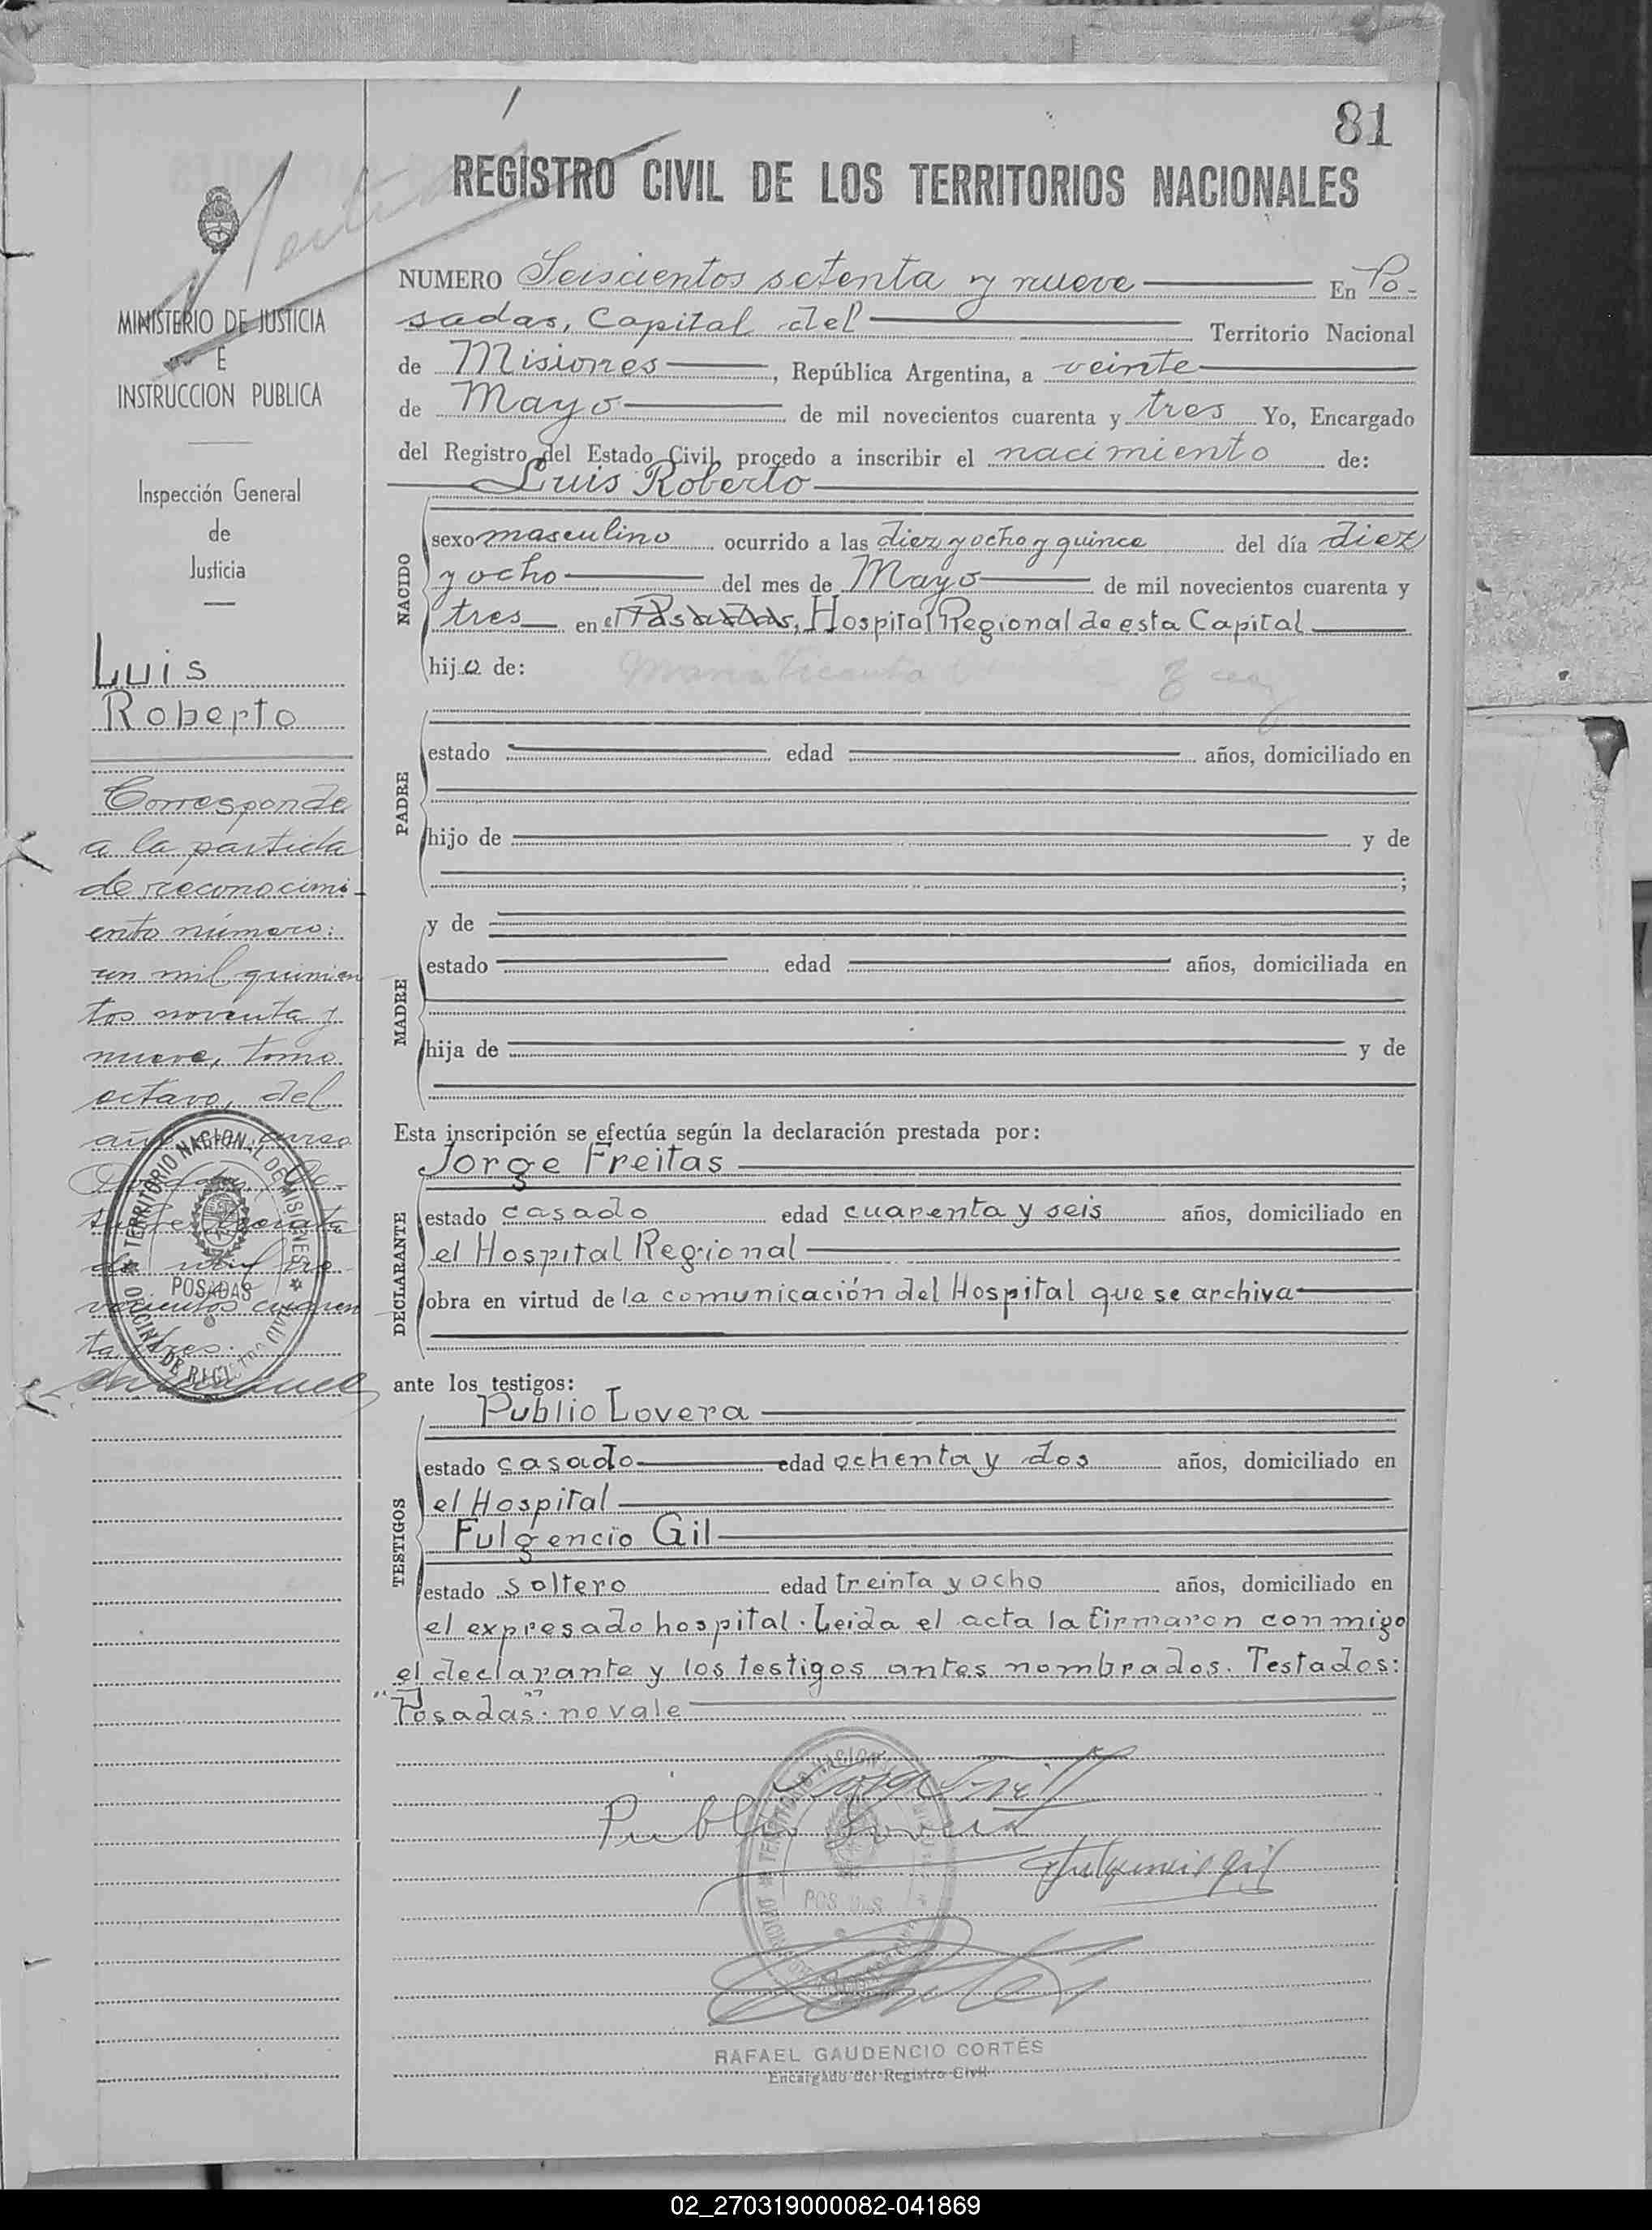 81
REGISTRO CIVIL DE LOS TERRITORIOS NACIONALES
MINISTERIO DE JUSTICIA
E
INSTRUCCION PUBLICA
Inspección General
de
Justicia
Luis
Roberto
Corresponde
a la partida
de reconocimi-
ento número:
un mil quinien
tos noventa y
nueve, tomo
octavo, del
año
de mil no-
vecientos cuaren
ta tres.
TERRITORIO NACIONAL DE MISIONES
POSADAS
OFICINA DE REGISTRO CIVIL
NUMERO Seiscientos setenta y nueve En Po-
sadas, Capital del Territorio Nacional
de Misiones, República Argentina, a veinte
de Mayo de mil novecientos cuarenta y tres Yo, Encargado
del Registro del Estado Civil, procedo a inscribir el nacimiento de:
Luis Roberto
NACIDO
sexo masculino ocurrido a las diez y ocho y quince del día diez
y ocho del mes de Mayo de mil novecientos cuarenta y
tres en el Posadas, Hospital Regional de esta Capital
hijo de: Maria Vicenta
PADRE
estado edad años, domiciliado en
hijo de y de
;
MADRE
y de
estado edad años, domiciliada en
hija de y de
Esta inscripción se efectúa según la declaración prestada por:
Jorge Freitas
DECLARANTE
estado casado edad cuarenta y seis años, domiciliado en
el Hospital Regional
obra en virtud de la comunicación del Hospital que se archiva
ante los testigos:
Publio Lovera
TESTIGOS
estado casado edad ochenta y dos años, domiciliado en
el Hospital
Fulgencio Gil
estado soltero edad treinta y ocho años, domiciliado en
el expresado hospital. Leida el acta la firmaron conmigo
el declarante y los testigos antes nombrados. Testados:
"Posadas". no vale
Publio Lovera
Fulgencio Gil
RAFAEL GAUDENCIO CORTÉS
Encargado del Registro Civil
02_270319000082-041869